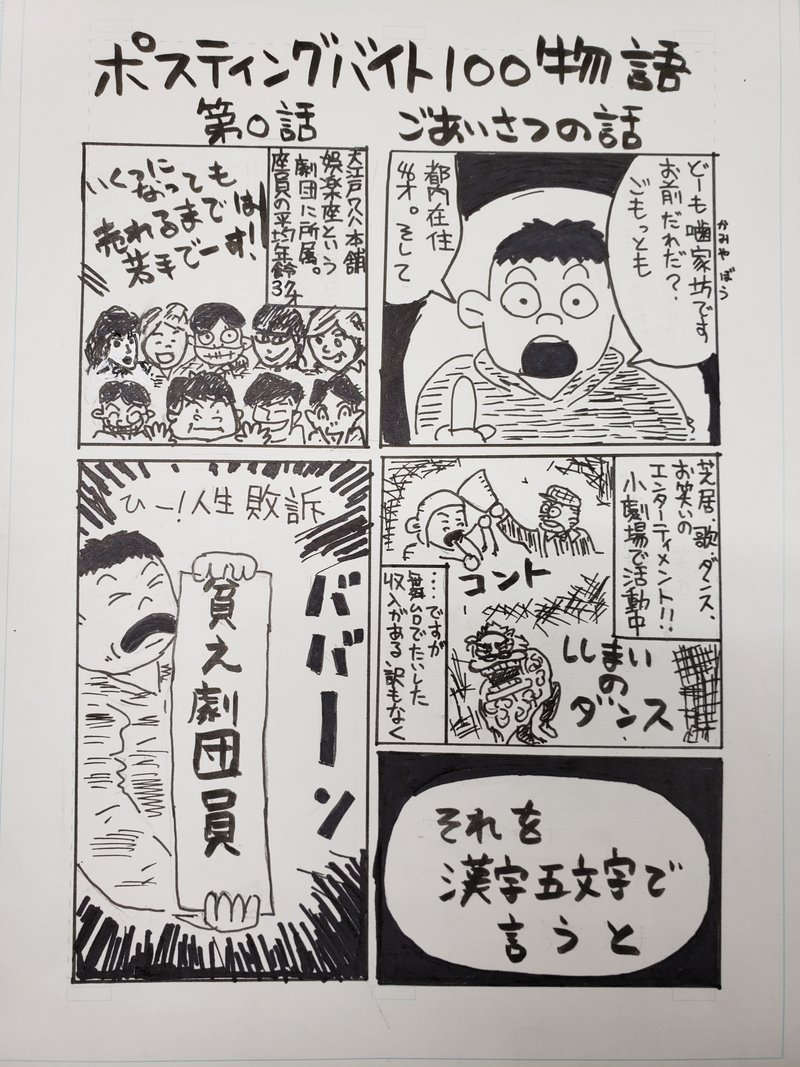 ポスティングバイト100物語
第0話 ごあいさつの話
どーも噛家坊です
かみやぼう
お前だれだ?
ごもっとも
都内在住
46才。そして
大江戸ワハハ本舗
娯楽座という
劇団に所属。
座員の平均年齢37才
いくつに
なっても
売れるまでは
若手でーす!
芝居、歌、ダンス、
お笑いの
エンターティメント!!
小劇場で活動中
コント
ししまい
の
ダンス
…ですが
舞台でたいした
収入がある訳もなく
それを
漢字五文字で
言うと
ババーン
ひー!人生敗訴
貧乏劇団員